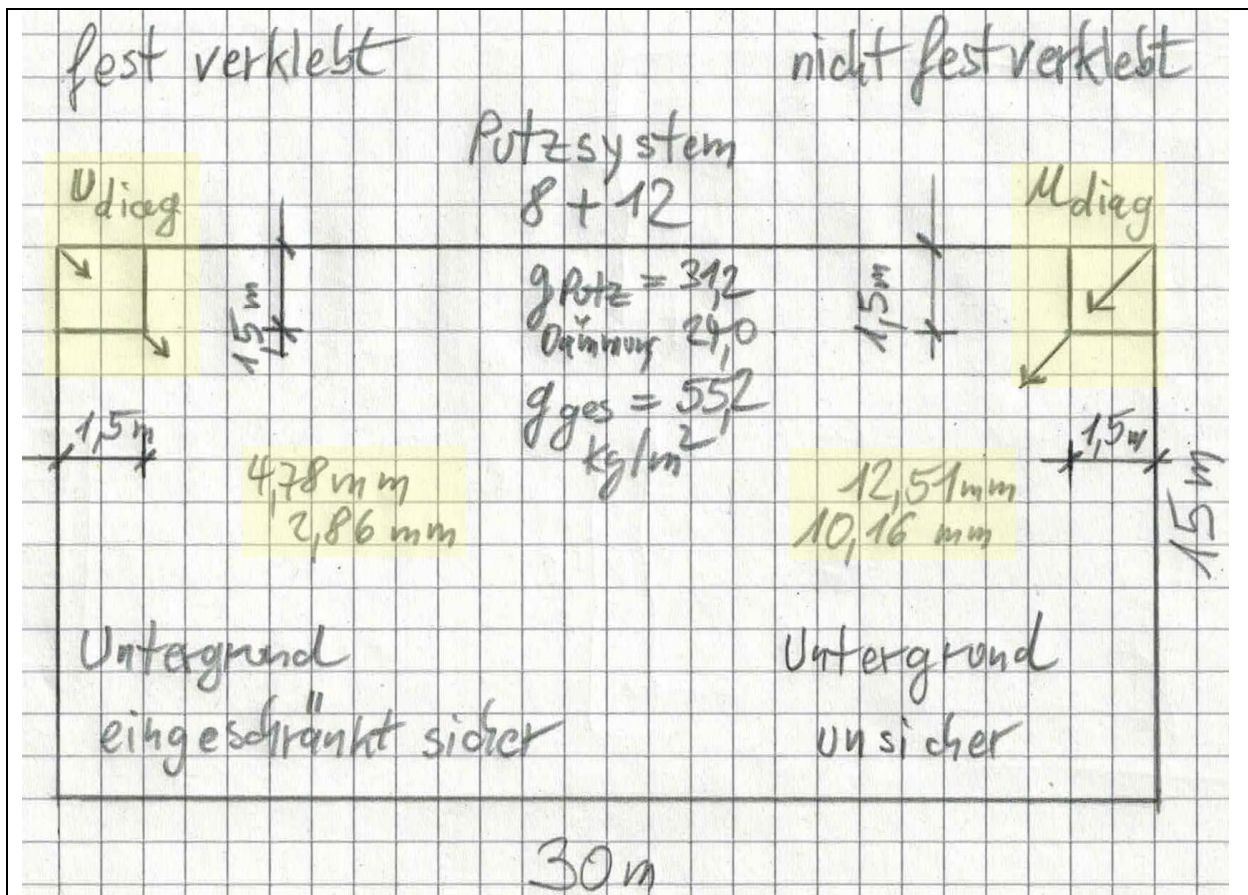 fest verklebt
nicht fest verklebt
Putzsystem
8 + 12
Udiag
Udiag
g Putz = 31,2
Dämmung 24,0
g ges = 55,2
kg/m²
1,5 m
1,5 m
1,5 m
1,5 m
15 m
4,78 mm
2,86 mm
12,51 mm
10,16 mm
Untergrund
eingeschränkt sicher
Untergrund
unsicher
30 m